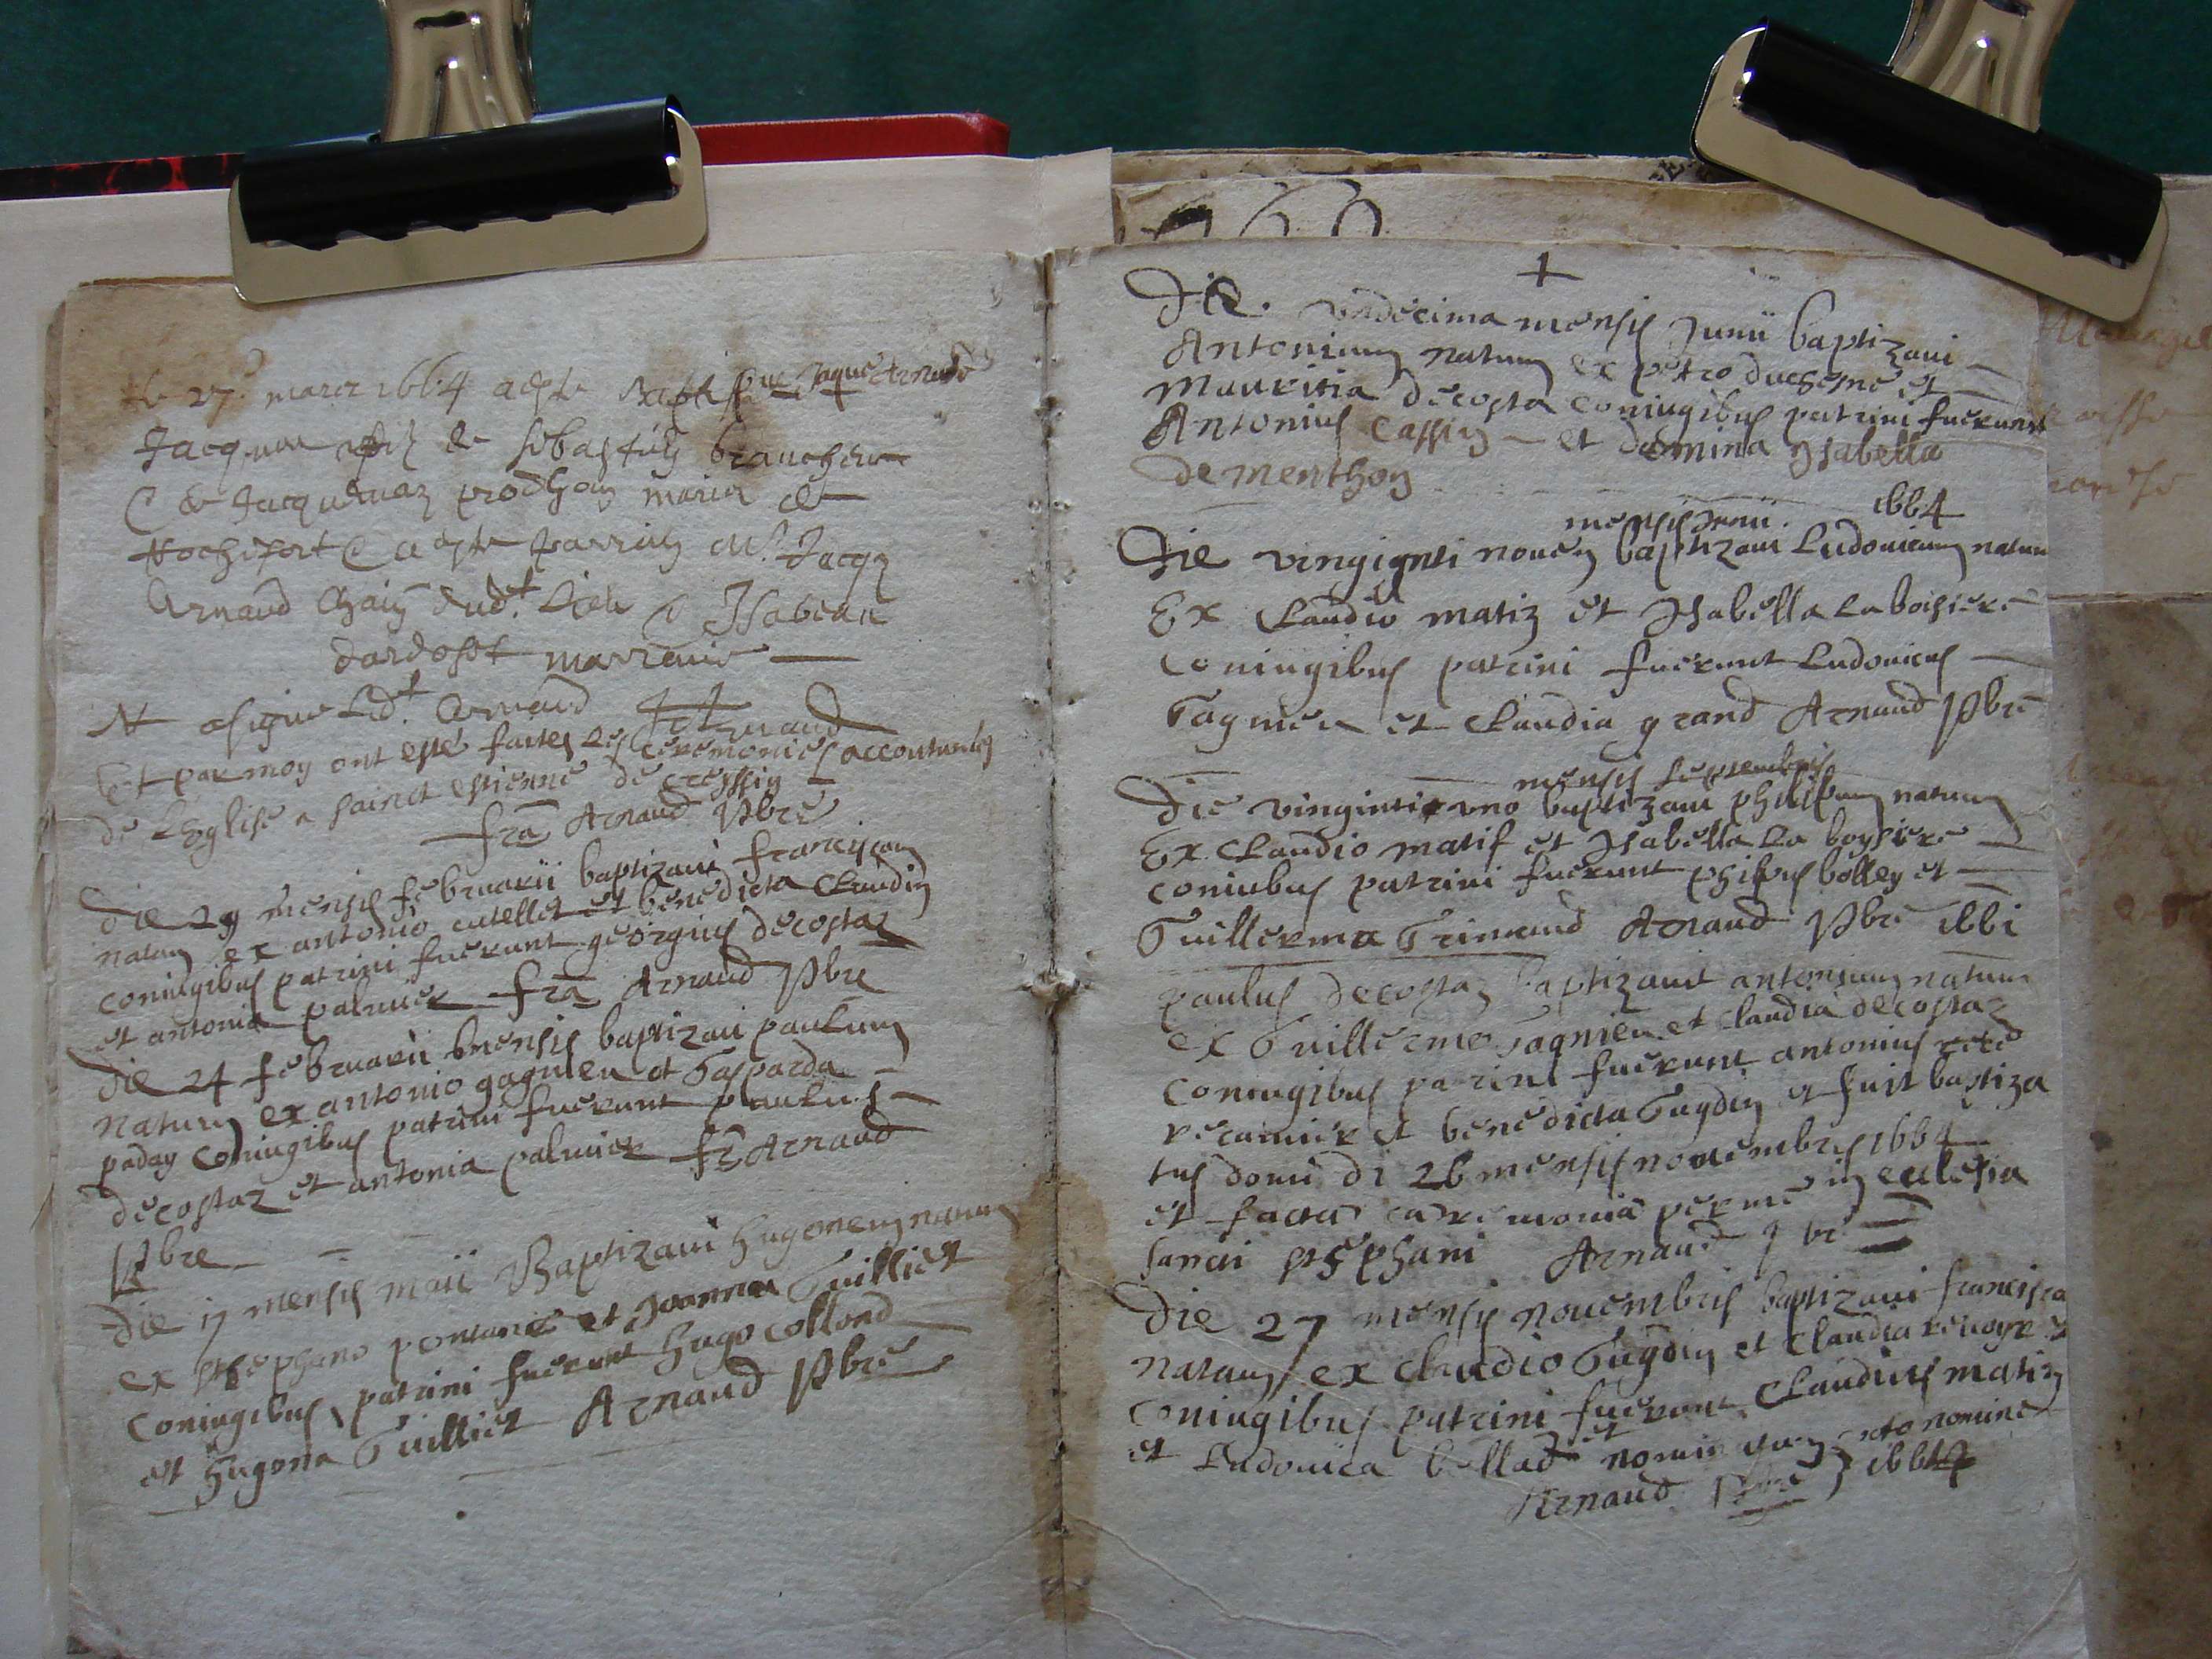 le 27 mars 1664 a este bapt par Jaque Arnaud
Jacquem fils de sebastien branchem
& Jacquemaz prodhon maria de
Rochefort & a este parrin Mr. Jacq
Arnaud Chain dud.t Lieu & Isabeau
dardosst marreine
N a signe Led.t Arnaud J Arnaud
Et par moy ont esté faites les ceremonies accoutumes
de L'Eglise a sainct estienne de cressin
fra Arnaud Pbre
die 29 mensis februarii baptizaui franciscam
natam ex antonio catellet et benedicta Claudin
coniugibus patrini fuerunt georgius decostaz
et antonia palmier fra Arnaud Pbre
die 24 februarii mensis baptizaui paulum
natum ex antonio gagnieu et Gasparda
paday coniugibus patrini fuerunt paulus
decostaz et antonia palmier fr Arnaud
Pbre
die mensis maii Baptizaui hugonem natum
ex stephano pontanie et Joanna Guilliet
coniugibus patrini fuerunt hugo collond
et hugona Guilliet Arnaud Pbre
+
Die vndecima mensis Junii baptizaui
Antonium natum ex petro duchene et
Mauritia decosta coniugibus patrini fuerunt
Antonius Cassin et domina ysabella
de menthon
mensis Junii. 1664
Die vingignti nouem baptizaui Ludouicum natum
Ex Claudio matiz et Isabella Laboisiere
coniugibus patrini fuerunt Ludouicus
Gagnieu et Claudia grand Arnaud Pbre
mensis septembris
Die vinginti uno baptizaui philipum natum
Ex Claudio matis et Isabella La boysiere
coniubus patrini fuerunt philipus bolley et
Guillerma Grimaud Arnaud Pbre
paulus decostaz baptizauit antonium natum
ex Guillermo Gagnieu et Claudia decostaz
coniugibus patrini fuerunt antonius
recamier et benedicta Guydin et fuit baptiza
tus domi di 26 mensis nouembris 1664
et facta caremonia per me in ecclesia
sancti stephani Arnaud
Die 27 mensis nouembris baptizaui francisca
natam ex claudio Guydin et Claudia
coniugibus patrini fuerunt Claudius matiz
et Ludouica nomine
Arnaud Pbre 1664